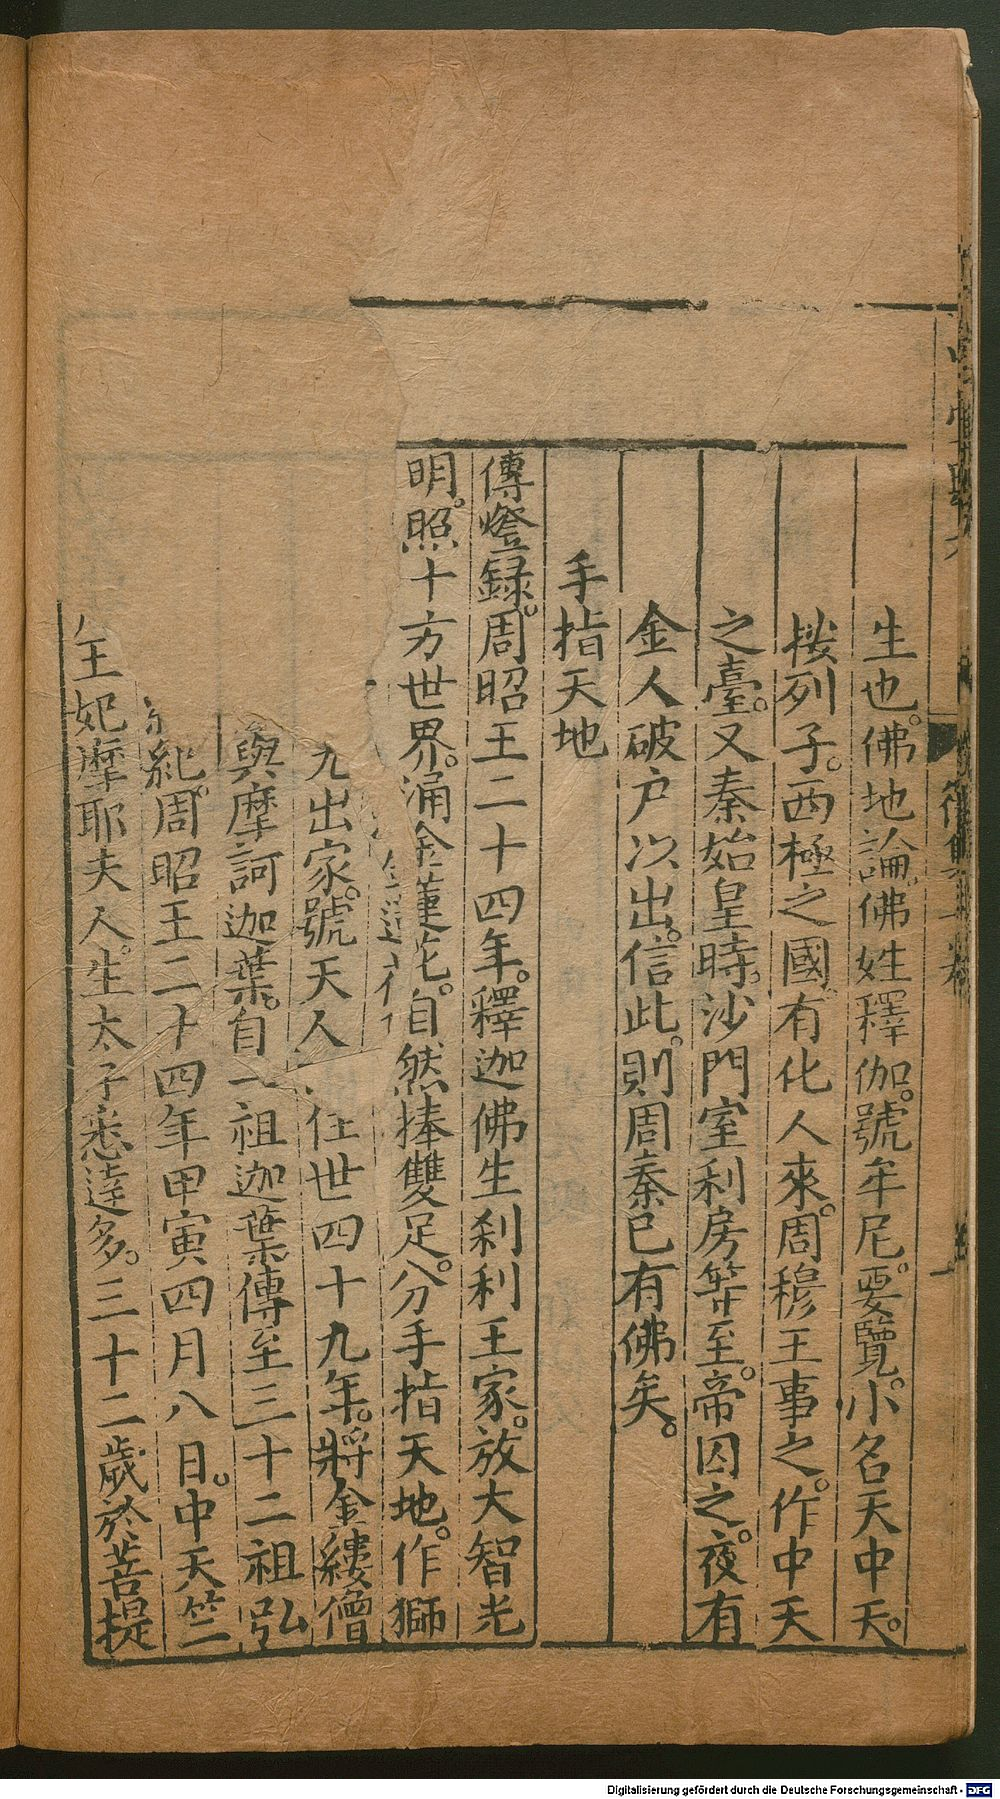 生也。佛地論。佛姓釋伽。號牟尼。要覽。小名天中天。
按列子。西極之國。有化人來。周穆王事之。作中天
之臺。又秦始皇時。沙門室利房等至。帝囚之。夜有
金人破戶以出。信此。則周秦已有佛矣。
手指天地
傳燈録。周昭王二十四年。釋迦佛生刹利王家。放大智光
明。照十方世界。涌金蓮花。自然捧雙足。分手指天地。作獅
九出家。號天人
住世四十九年。將金縷僧
與摩訶迦葉。自一祖迦葉傳至三十二祖弘
紀。周昭王二十四年甲寅四月八日。中天竺
王妃摩耶夫人。生太子悉達多。三十二歲於菩提
Digitalisierung gefördert durch die Deutsche Forschungsgemeinschaft - DFG